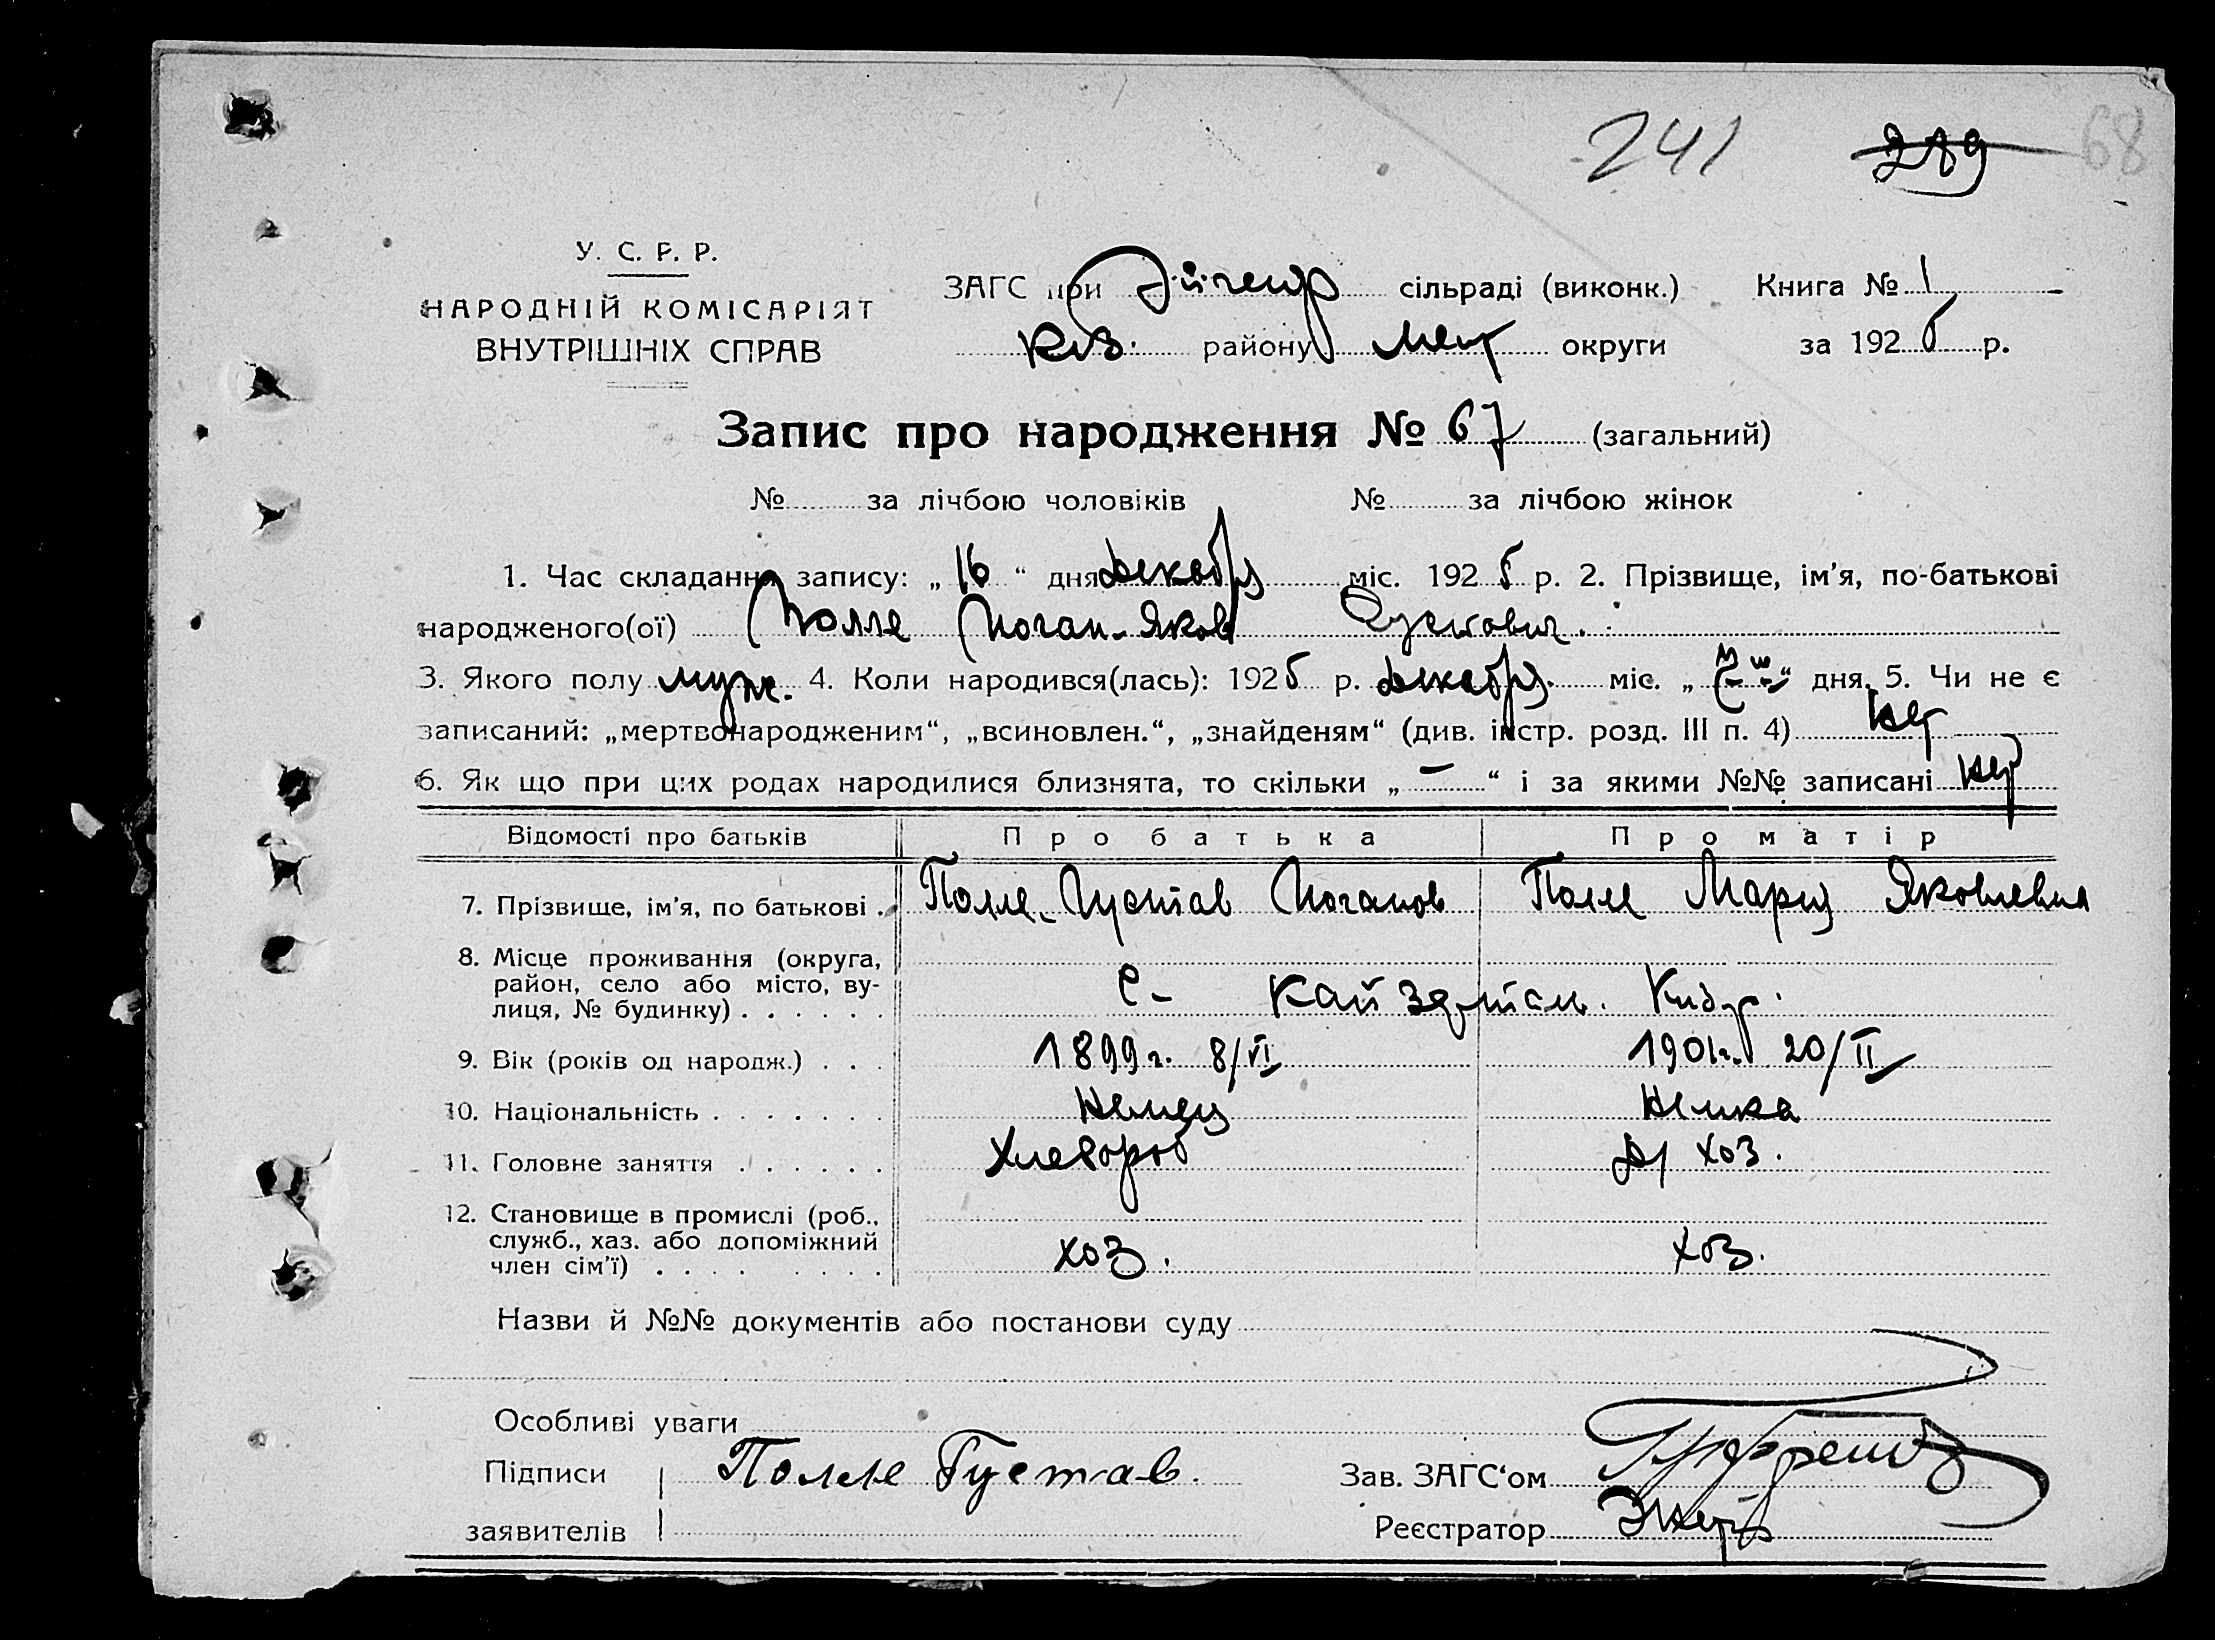 241 289 68
У. С. Р. Р.
НАРОДНІЙ КОМІСАРІЯТ
ВНУТРІШНІХ СПРАВ
ЗАГС при сільраді (виконк.) Книга № 1
району Мел округи за 1925 р.
Запис про народження № 67 (загальний)
№ за лічбою чоловіків № за лічбою жінок
1. Час складання запису: „ 16 “ дня декабря міс. 1925 р. 2. Прізвище, ім'я, по-батькові
народженого(ої) Полле Иоган-Яков Густавович.
3. Якого полу муж. 4. Коли народився(лась): 1925 р. декабря міс. „ “ дня. 5. Чи не є
записаний: „мертвонародженим“, „всиновлен.“, „знайденям“ (див. інстр. розд. III п. 4) нет
6. Як що при цих родах народилися близнята, то скільки „ — “ і за якими №№ записані нет
Відомості про батьків Про батька Про матір
7. Прізвище, ім'я, по батькові . Полле Густав Иоганов Полле Мария Яковлевна
8. Місце проживання (округа,
район, село або місто, ву-
лиця, № будинку) . . . . . . С- Кайзерталь.
9. Вік (років од народж.) . . . 1899 г. 8/VI 1901 г. 20/II
10. Національність . . . . . . . Немец Немка
11. Головне заняття . . . . . . Хлебороб д/хоз.
12. Становище в промислі (роб.,
служб., хаз. або допоміжний
член сім'ї) . . . . . . . . хоз. хоз.
Назви й №№ документів або постанови суду
Особливі уваги
Підписи Полле Густав. Зав. ЗАГС'ом
заявителів Реєстратор